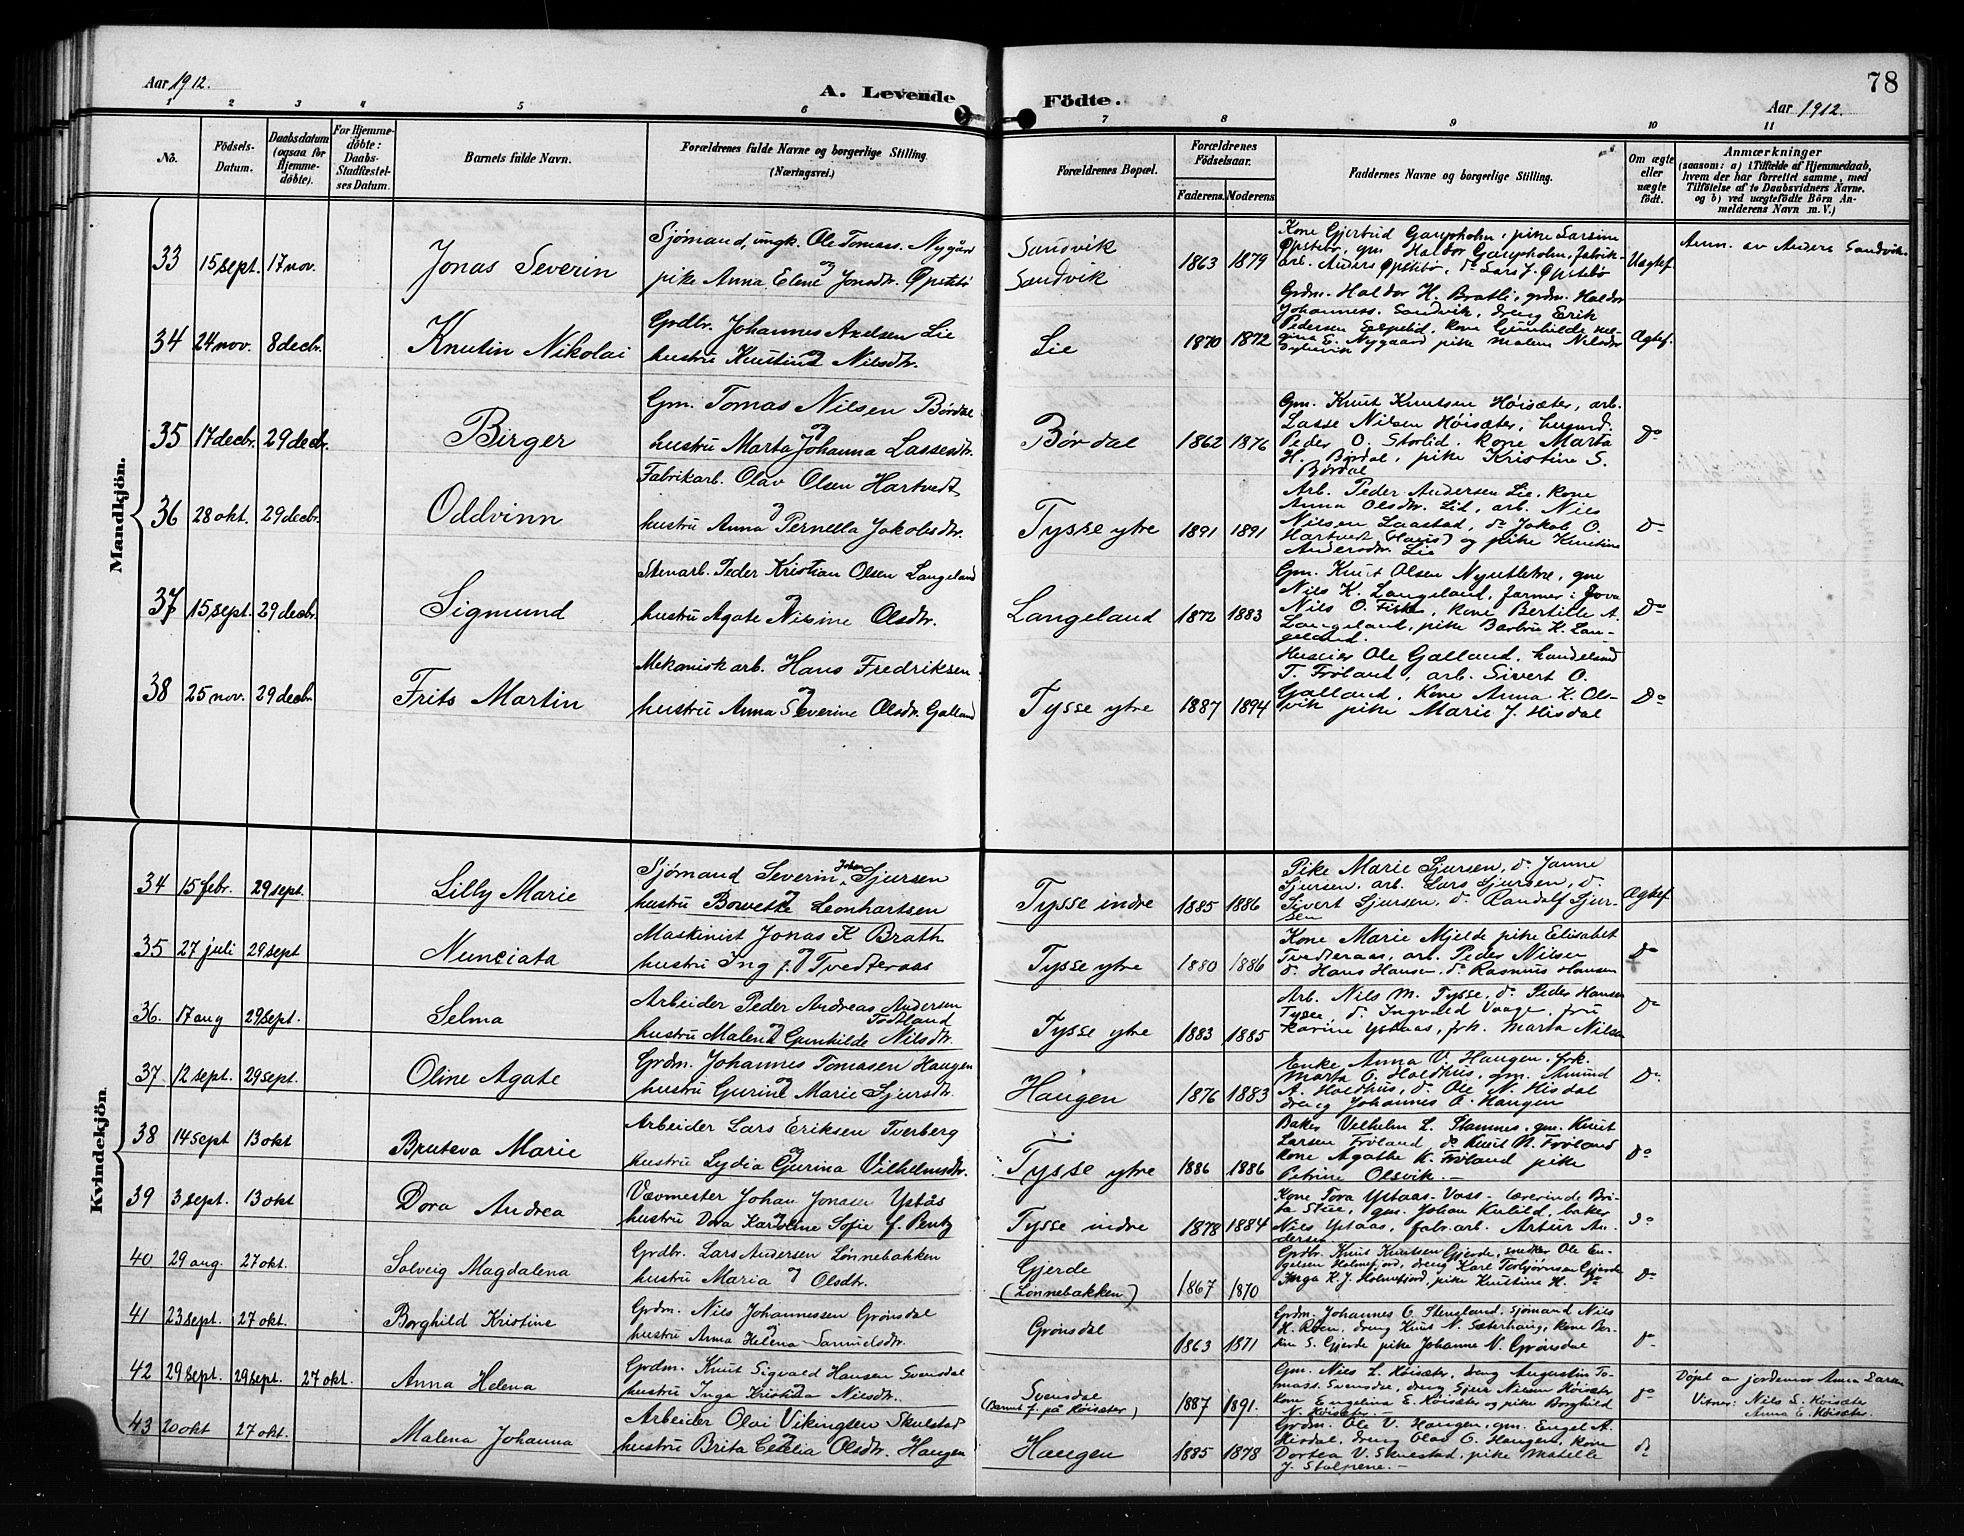 Aar 1912.
A. Levende Födte.
78
Aar 1912.
1 2 3 4 5 6 7 8 9 10 11
No.
Födsels-Datum.
Daabsdatum (ogsaa for Hjemme-döbte).
For Hjemme-döbte: Daabs-Stadfæstel-ses Datum.
Barnets fulde Navn.
Forældrenes fulde Navne og borgerlige Stilling. (Næringsvei.)
Forældrenes Bopæl.
Forældrenes Födselsaar.
Faderens. Moderens.
Faddernes Navne og borgerlige Stilling.
Om ægte eller uægte födt.
Anmærkninger
(saasom: a) i Tilfælde af Hjemmedaab, hvem der har forrettet samme, med Tilföielse af to Daabsvidners Navne. og b) ved uægtefödte Börn An-melderens Navn m. V.)
Mandkjön.
33 15 sept. 17 nov. Jonas Severin
Sjømand, ungk. Ole Tomass. Nygård
og
pike Anna Elene Jonsdr. Øpstebø
Sandvik
Sandvik
1863 1879
Kone Gjertrud Gaupholm, pike Larsine
Øpstebø, gm. Haldor Gaupholm, fabrik-
arb. Anders Øpstebø, do Lars J. Øpstebø
Uægtef.
Anm. av Anders Sandvik.
34 24 nov. 8 decbr. Knutin Nikolai
Grdbr. Johannes Axelsen Lie
og
hustru Kristine Nilsdtr.
Lie
1870 1872
Grdm. Haldor H. Bratli, grdm. Haldor
Johanness. Sandvik, dreng Erik
Pedersen, kone Gunhilde
Nygaard pike Malene Nilsdtr
Ægtef.
35 17 decbr. 29 decbr. Birger
Gm. Tomas Nilsen Børdal
og
hustru Marta Johanna Lassesdtr.
Børdal
1862 1876
Gm. Knut Knutsen Høisæter, arb.
Lasse Nilsen Høisæter,
Peder O. Storlid, kone Marta
H. Børdal, pike Kristine S.
Børdal
Do
36 28 okt. 29 decbr. Oddvinn
Fabrikarb. Olav Olsen Hartvedt
og
hustru Anna Pernella Jakobsdtr.
Tysse ytre
1891 1891
Arb. Peder Andersen Lie, kone
Anna Olsdtr. Lid, arb. Nils
Nilsen Laastad, do Jakob O.
Hartvedt (Haus) og pike Kristine
Andersdtr. Lie
Do
37 15 sept. 29 decbr. Sigmund
Stenarb. Peder Kristian Olsen Langeland
og
hustru Agate Nisine Olsdtr.
Langeland
1872 1883
Gm. Knut Olsen Nyutletre, gm
Nils K. Langeland, farmer i Iova
Nils O. Fisk, kone Bertille A.
Langeland, pike Barbru K. Lan-
geland.
Do
38 25 nov. 29 decbr. Frits Martin
Mekanisk arb. Hans Fredriksen
og
hustru Anna Severine Olsdtr. Galland
Tysse ytre
1887 1894
Huseier Ole Galland, handelsmd
T. Frøland, arb. Sivert O.
Galland, kone Anna K. Ols-
vik pike Marie J. Hisdal
Do
Kvindekjön
34 15 febr. 29 sept. Lilly Marie
Sjømand Severin Johan Sjursen
og
hustru Bowette Leonhartsen
Tysse indre
1885 1886
Pike Marie Sjursen, do Janne
Sjursen, arb. Lars Sjursen, do
Sivert Sjursen, do Randolf Sjur-
sen
Ægtef
35 27 juli 29 sept Nunciata
Maskinist Jonas K Brath
og
hustru Ing f. Tvedteraas
Tysse ytre
1880 1886
Kone Marie Mjelde pike Elisabet
Tvedteraas, arb. Peder Nilsen
do Hans Hansen, do Rasmus Hansen
Do
36. 17 aug 29 sept. Selma
Arbeider Peder Andreas Andersen
Todtland
og
hustru Malene Gunhilde Nilsdtr.
Tysse ytre
1883 1885
Arb. Nils M. Tysse, do Peder Hansen
Tysse, do Ingvald Vaage, fru
Karine Ystaas, frk. Marta Nilsen
Do
37 12 sept. 29 sept. Oline Agate
Grdm. Johannes Tomasen Haugen
og
hustru Gurine Marie Sjursdtr.
Haugen
1876 1883
Enke Anna V. Haugen, frk.
Marta O. Holdhus, gm. Amund
A. Holdhus, do Ole N. Hisdal
dreng Johannes O. Haugen
Do
38 14 sept 13 okt Bruteva Marie
Arbeider Lars Eriksen Tverberg
og
hustru Lydia Gurina Vilhelmsdtr.
Tysse ytre
1886 1886
Baker Vilhelm L. Stamnes, gm. Knut
Larsen Frøland, do Knut N. Frøland
kone Agathe K. Frøland pike
Petrine Olsvik. –
Do
39 3 sept. 13 okt Dora Andrea
Vævmester Johan Jonsen Ystås
og
hustru Dora Karoline Sofie f. Pentz
Tysse indre
1878 1884
Kone Tora Ystaas-Voss – lærerinde Bri-
ta Stue, gm. Johan Kulild, baker
Nils Ystaas, fabr. arb. Artur An-
dersen
Do
40 29 aug. 27 okt. Solveig Magdalena
Grdbr. Lars Andersen Lønnebakken
og
hustru Maria Olsdtr.
Gjerde
(Lønnebakken)
1867 1870
Grdbr. Knut Knutsen Gjerde, snedker Ole En-
gelsen Holmefjord, dreng Karl Torbjørnsen Gjerde
Inga K. J. Holmefjord, pike Kristine H. do
Do
41 23 sept. 27 okt. Borghild Kristine
Grdm. Nils Johannessen Grønsdal
og
hustru Anna Helena Samuelsdtr.
Grønsdal
1863 1871
Grdm. Johannes O. Stengland, sjömand Nils
H. Röen, dreng Knut N. Sæterhaug, kone Ber-
tine S. Gjerde pike Johanne N. Grønsdal
Do
42 29 sept. 29 sept. 27 okt. Anna Helena
Grdm. Knut Sigvald Hansen Svensdal
hustru Inga Kristina Nilsdtr.
Svensdal
(Barnet f. på Høisæter)
1887 1891.
Gm. Nils L. Høisæter, dreng Augustin To-
mass. Svensdal, dreng Sjur Nilsen Høisæter
Kone Engelina E. Høisæter og pike Borghild
N. Høisæter. –
Do
Døpt av jordemor Anna Larsen
Vitner: Nils L. Høisæter
Anna E. Høisæter.
43 20 okt 27 okt. Malena Johanna
Arbeider Olai Vikingsen Skulstad
og
hustru Brita Cecilia Olsdtr. Haugen
Haugen
1885 1878
Grdm. Ole V. Haugen, gm. Engel A.
Hisdal, dreng Olav O. Haugen, kone
Dortea V. Skulstad, pike Matelle
J. Stolpene. –
Do